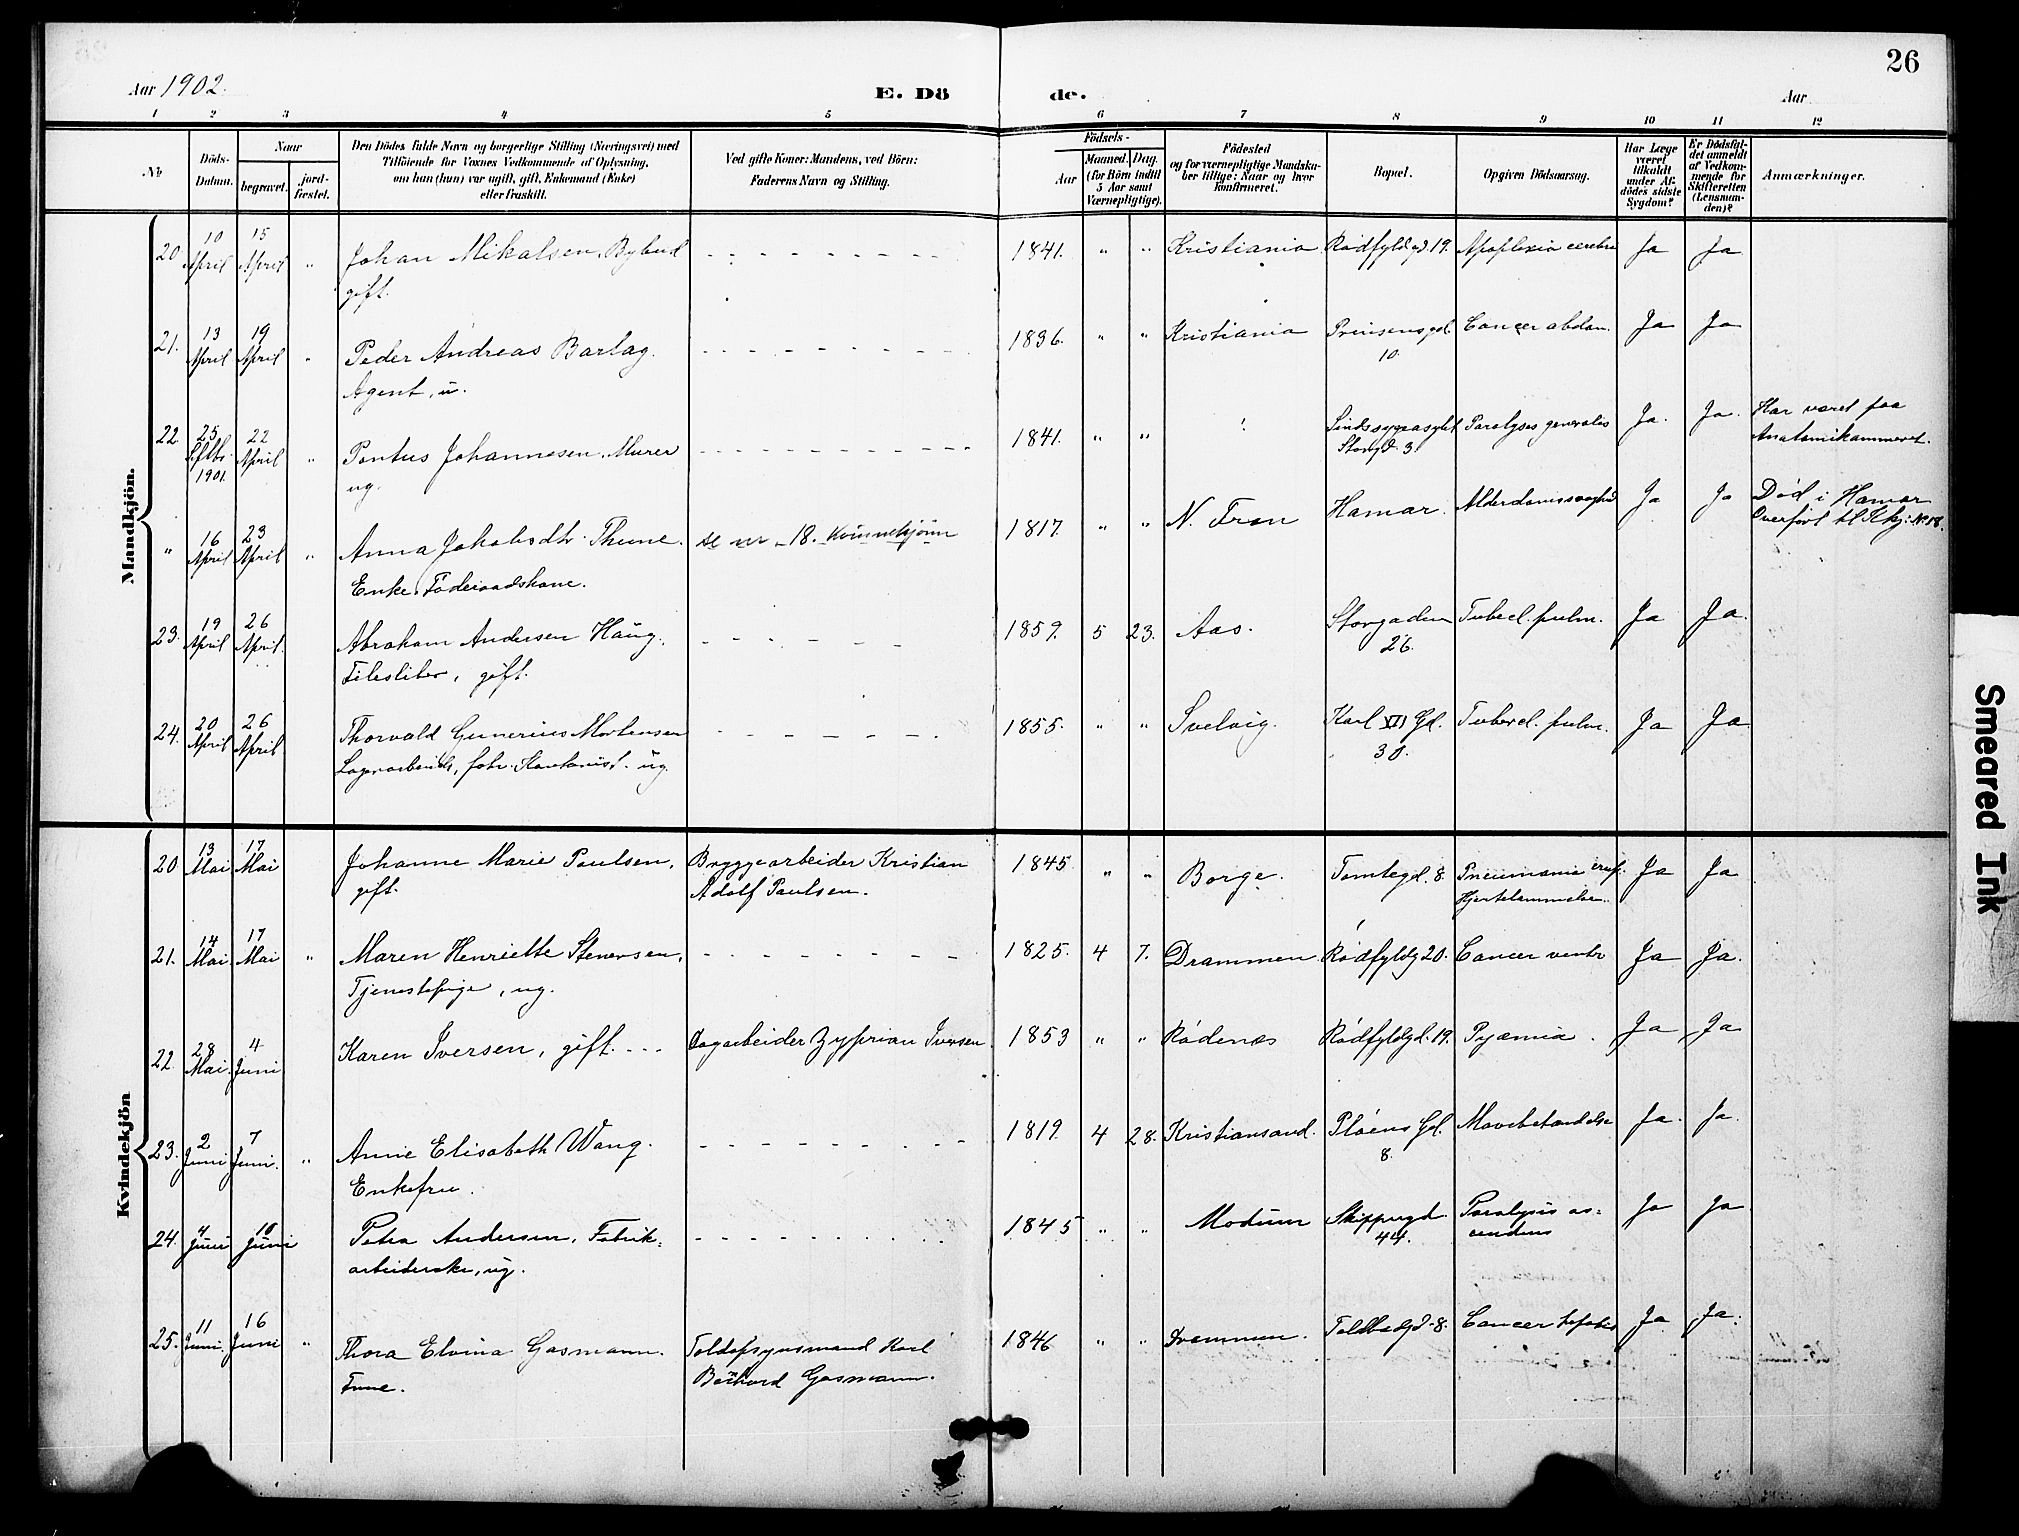 26
Aar 1902.
E. Dö de.
Aar
1 2 3 4 5 6 7 8 9 10 11 12
No
Döds-
Datum.
Naar
begravet.
jord-
fæstet.
Den Dödes fulde Navn og borgerlige Stilling (Næringsvei) med
Tilföiende for Voxnes Vedkommende af Oplysning,
om han (hun) var ugift, gift, Enkemand (Enke)
eller fraskilt.
Ved gifte Koner: Mandens, ved Börn:
Faderens Navn og Stilling.
Födsels-
Aar
Maaned. Dag.
(for Börn indtil
5 Aar samt
Værnepligtige).
Födested
og for værnepligtige Mandska-
ber tillige: Naar og hvor
konfirmeret.
Bopæl.
Opgiven Dödsaarsag.
Har Læge
været
tilkaldt
under Af-
dödes sidste
Sygdom?
Er Dödsfal-
det anmeldt
af Vedkom-
mende for
Skifteretten
(Lensman-
den)?
Anmærkninger.
Mandkjön.
20 10 April 15 April " Johan Mikalsen, Bybud - - - 1841. " " Kristiania Rødfyldgd. 19. Apoplexia cerebri Ja Ja
gift.
21. 13 April 19 April " Peder Andreas Barlag. - - - 1836. " " Kristiania Prinsensgd. Cancer abdom. Ja Ja
10.
Agent, u.
22. 25 Septbr. 1901. 22 April " Pontus Johannesen, Murer - - - 1841. " " ? Sindssygeasylet Paralyses generalis Ja. Ja. Har været paa
Storgd. 3. Anatomikammeret.
ug.
" 16 April 23 April " Anna Jakobsdtr. Thune. se nr. 18. Kvinnekjønn 1817. " " N. Fron Hamar. Alderdomssvaghed Ja Ja Død i Hamar
Overført til Kkj: No 18.
Enke, Føderaadskone.
23. 19 April 26 April. Abraham Andersen Haug. - - - 1859. 5 23. Aas. Storgaden Tubercl. pulm. Ja Ja.
26.
Filesliber, gift.
24. 20 April 26 April Thorvald Gunerius Mortensen - - - 1855. " " Svelvig. Karl XII Gd. Tubercl. pulm. Ja Ja
30.
Lagerarbeider, forh. Kontorist. ug.
Kvindekjön
20 13 Mai 17 Mai Johanne Marie Paulsen, Bryggearbeider Kristian 1845 " " Borge. Tomtegd. 8. Pneumonia crup. Ja Ja
gift. Adolf Paulsen. Hjertelammelse.
21. 14 Mai 17 Mai " Maren Henriette Stenersen, - - - 1825. 4 7. Drammen Rødfyldg 20. Cancer ventr Ja Ja.
Tjenestepige, ug.
22. 28 Mai. 4 Juni Karen Iversen, gift. - - - Dagarbeider Zyprian Iversen 1853 " " Rødenæs Rødfyldgd. 19. Pyæmia. Ja Ja
23. 2 Juni 7 Juni. " Anne Elisabeth Wang. - - - 1819. 4 28. Kristiansand. Pløens Gd. Mavebetændelse Ja. Ja.
8.
Enkefru.
24. 4 Juni 10 Juni Petra Andersen, Fabrik- - - - 1845 " " Modum Skippergd. Paralysis as- Ja Ja
arbeiderske, ug. 44. cendens
25. 11 Juni. 16 Juni " Thora Elvina Gasmann. Toldopsynsmand Karl 1846 " " Drammen. Toldbodgd. 8. Cancer hepatis Ja Ja.
Frue. Gasmann.
Smeared Ink